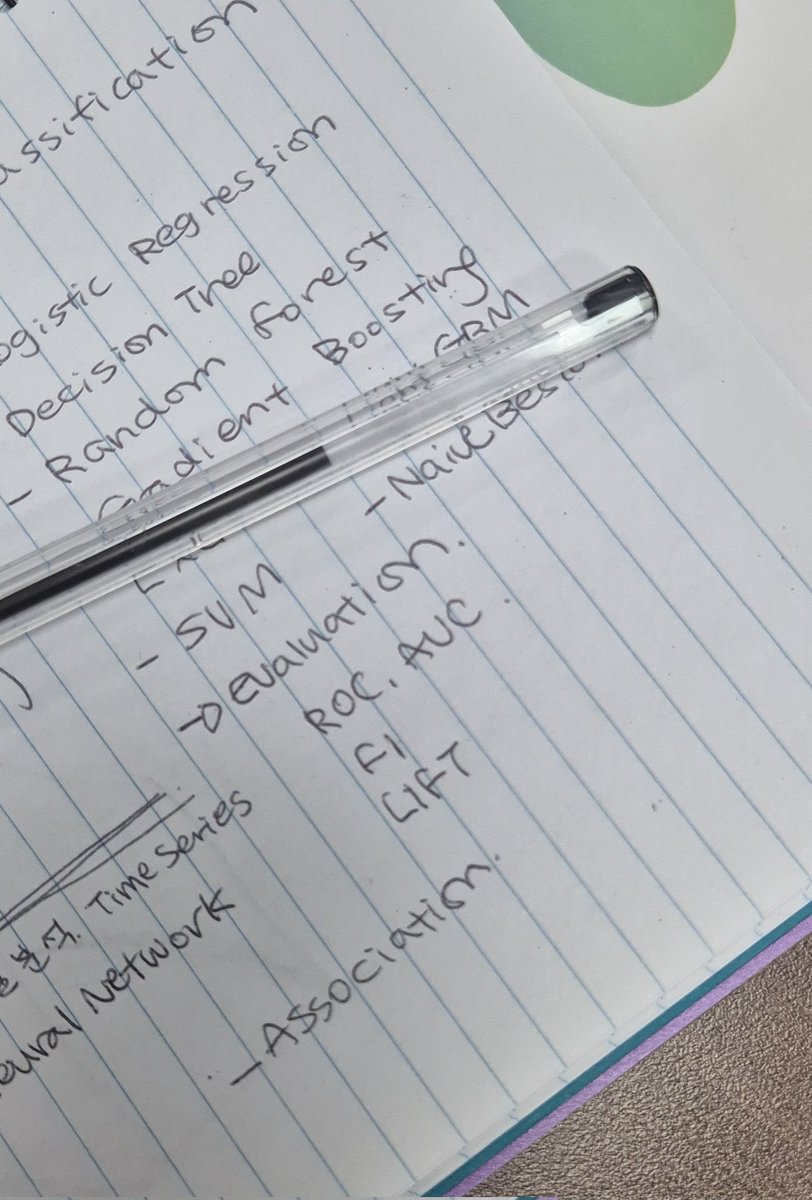 assification
ogistic Regression
Decision Tree
- Random Forest
Gradient Boosting
GBM
- Naive Bes
- SVM
→ evaluation.
ROC, AUC.
F1
LIFT
Time Series
eural Network
- Association.